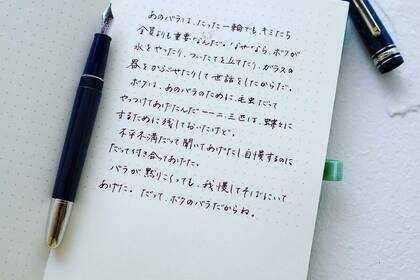 あのバラは、たった一輪でも、キミたち
全員よりも重要なんだ。なぜなら、ボクが
水をやったり、ついたてを立てたり、ガラスの
器をかぶせたりして世話をしたからだ。
ボクは、あのバラのために、毛虫だって
やっつけてあげたんだ――二、三匹は、蝶々に
するために残しておいたけど。
不平不満だって聞いてあげたし、自慢するのに
だって付き合ってあげた。
バラが黙りこくっても、我慢してそばにいて
あげた。だって、ボクのバラだからね。